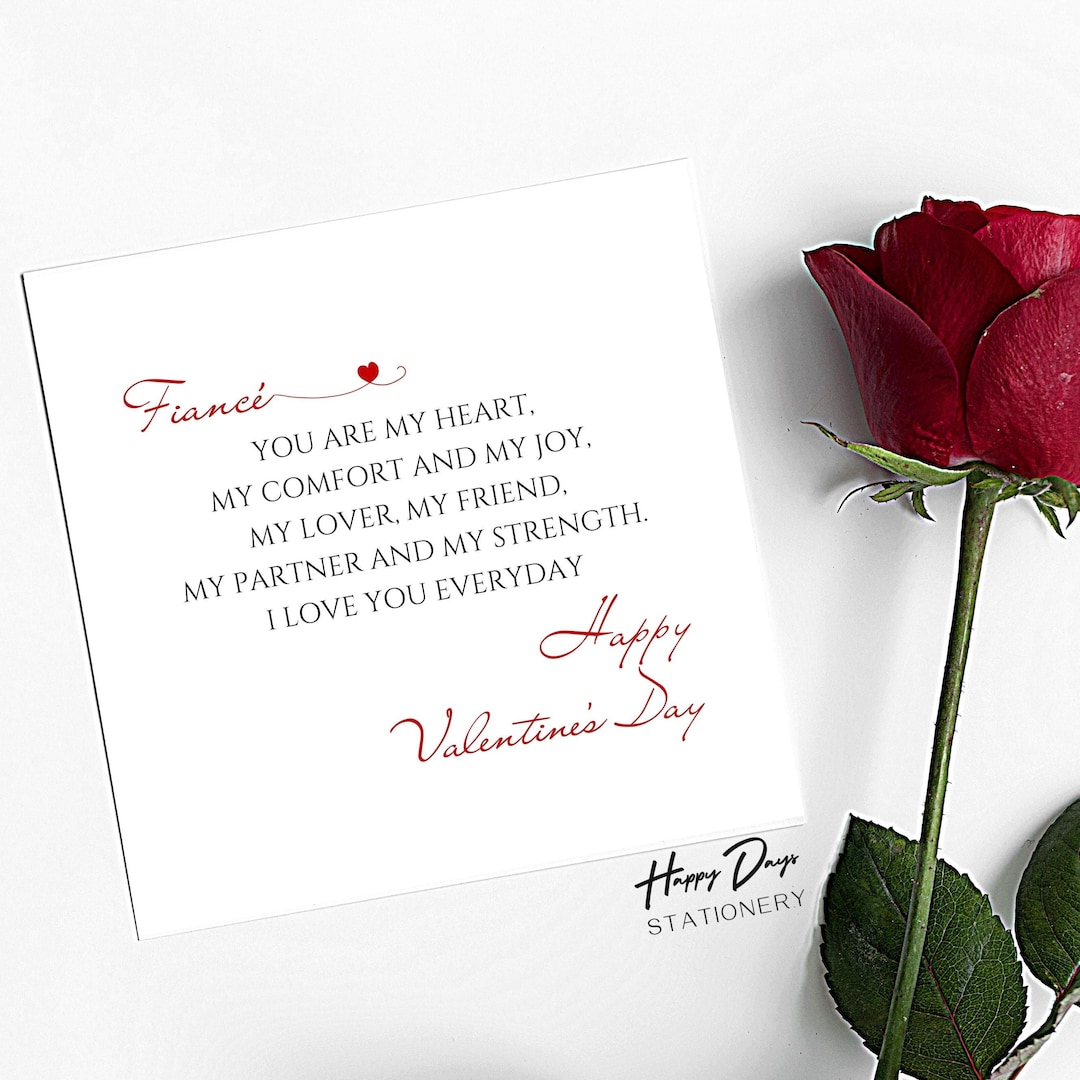 Fiancé
YOU ARE MY HEART,
MY COMFORT AND MY JOY,
MY LOVER, MY FRIEND,
MY PARTNER AND MY STRENGTH.
I LOVE YOU EVERYDAY
Happy
Valentine's Day
Happy Days
STATIONERY